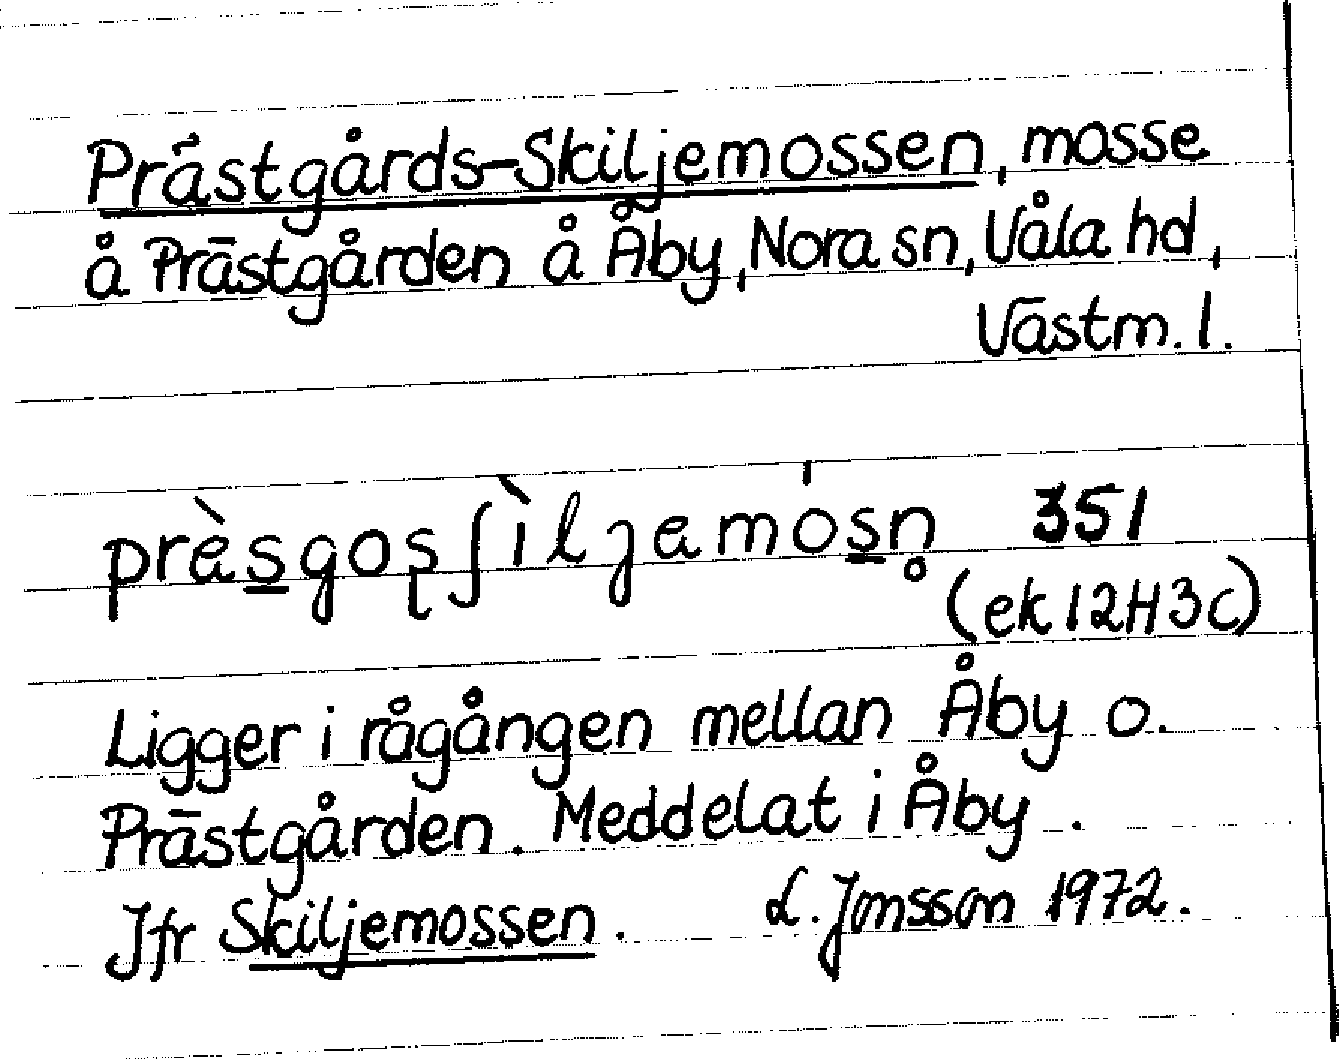 Prästgårds-Skiljemossen, mosse
å Prästgården å Åby, Nora sn, Våla hd,
Västm. l.
prèsgoʂʃìljemósn̥ 351
(ek 12H3c)
Ligger i rågången mellan Åby o.
Prästgården. Meddelat i Åby.
Jfr Skiljemossen. L. Jonsson 1972.